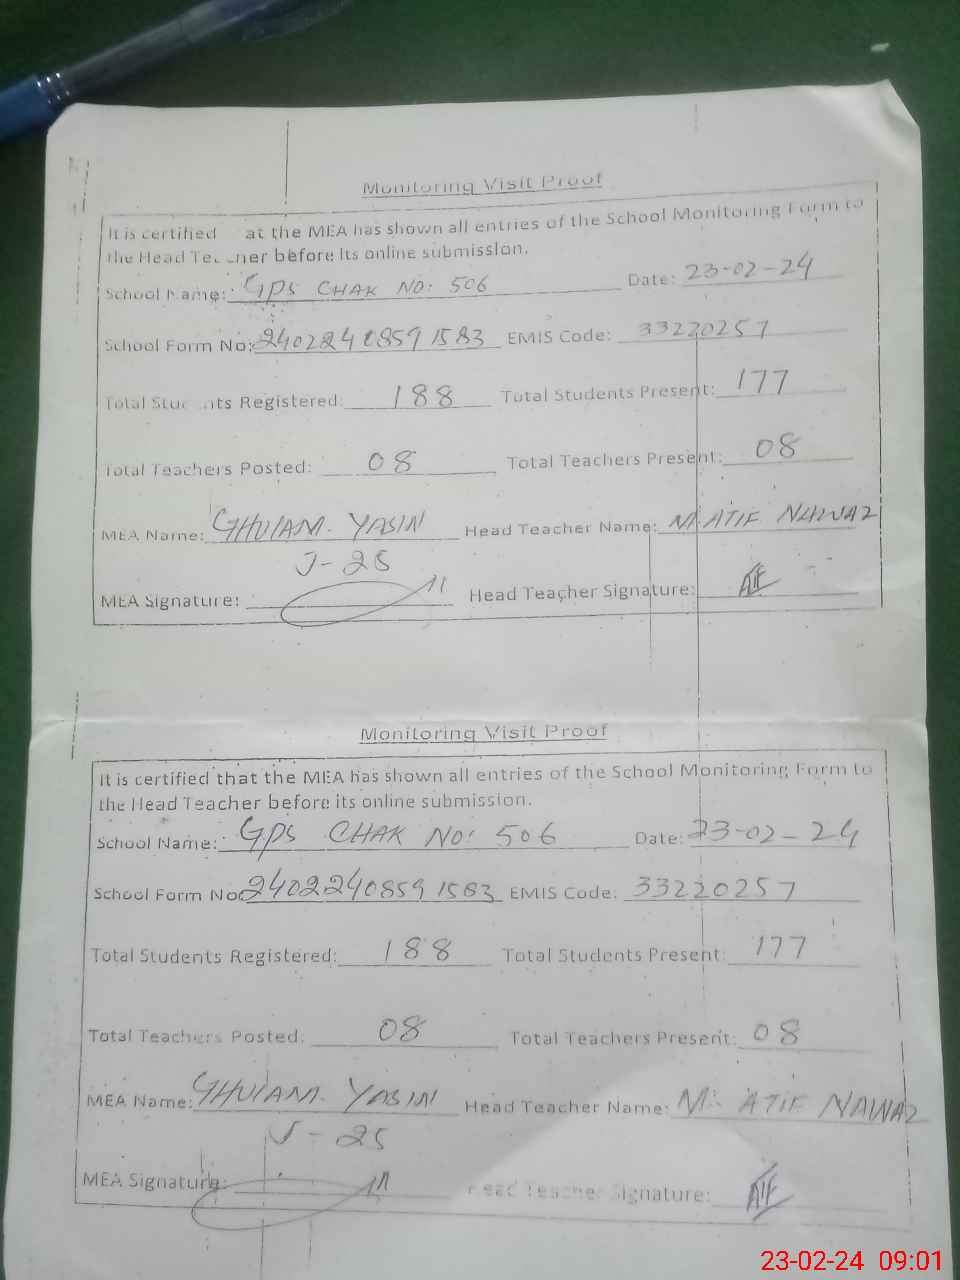 Monitoring Visit Proof
It is certified at the MEA has shown all entries of the School Monitoring Form to
the Head Te ner before its online submission.
School Name: GPS CHAK NO: 506 Date: 23-02-24
School Form No: 24022408591583 EMIS Code: 33220257
Total Stud nts Registered: 188 Total Students Present: 177
Total Teachers Posted: 08 Total Teachers Present: 08
MEA Name: GHULAM. YASIN Head Teacher Name: M. ATIF NAWAZ
J-25
MEA Signature: Head Teacher Signature: ATF
Monitoring Visit Proof
It is certified that the MEA has shown all entries of the School Monitoring Form to
the Head Teacher before its online submission.
School Name: GPS CHAK NO: 506 Date: 23-02-24
School Form No: 24022408591583 EMIS Code: 33220257
Total Students Registered: 188 Total Students Present: 177
Total Teachers Posted: 08 Total Teachers Present: 08
MEA Name: GHULAM. YASIN Head Teacher Name: M. ATIF NAWAZ
J-25
MEA Signature: Head Teacher Signature: ATF
23-02-24 09:01